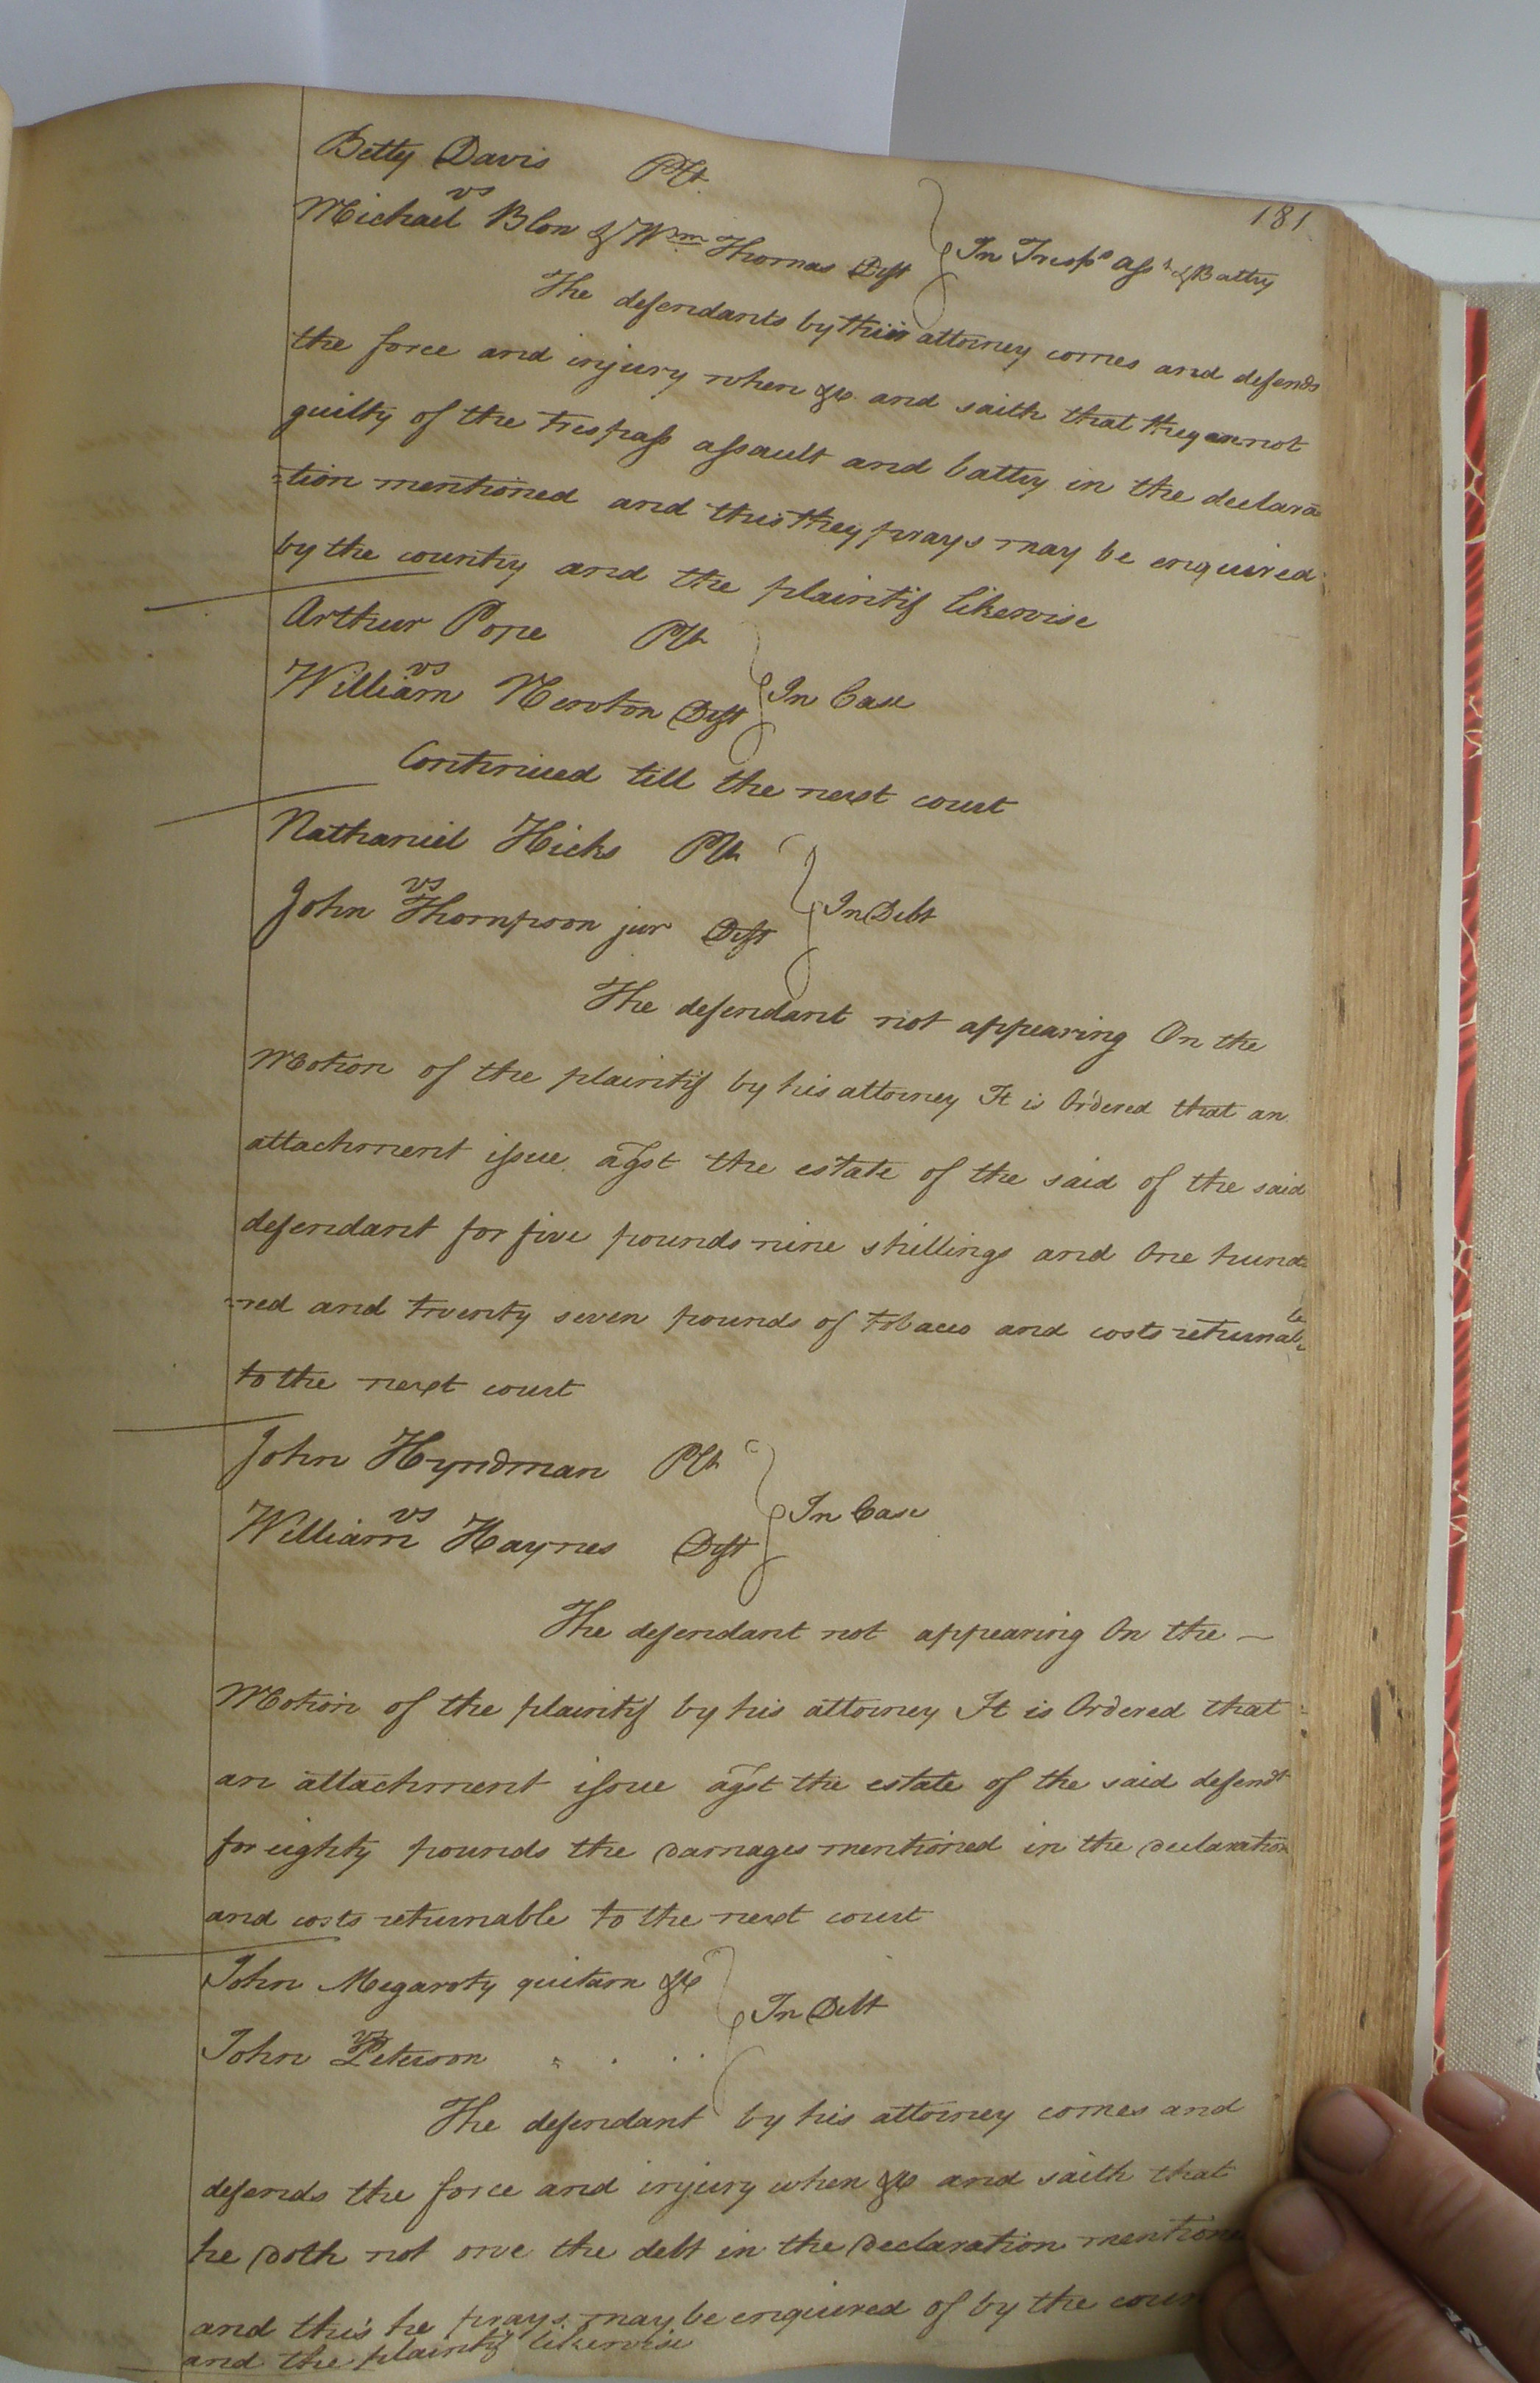 181
Betty Davis Plt
vs
Michael Blon & Wm Thomas Deft
In Tresps Asst & Battry
The defendants by their attorney comes and defends
the force and injury when &c and saith that they are not
guilty of the trespass assault and battry in the declara
=tion mentioned and this they prays may be enquired
by the country and the plaintif likewise
Arthur Pope Plt
vs
William Newton Deft
In Case
Continued till the next court
Nathaniel Hicks Plt
vs
John Thompson jur Deft
In Debt
The defendant not appearing On the
Motion of the plaintif by his attorney It is Ordered that an
attachment issue agst the estate of the said of the said
defendant for five pounds nine shillings and One hund=
=red and twenty seven pounds of tobacco and costs returnable
to the next court
John Hyndman Plt
vs
William Haynes Deft
In Case
The defendant not appearing On the —
Motion of the plaintif by his attorney It is Ordered that
an attachment issue agst the estate of the said defendt
for eighty pounds the damages mentioned in the declaration
and costs returnable to the next court
John Megaroty quitam &c
vs
John Peterson
In Debt
The defendant by his attorney comes and
defends the force and injury when &c and saith that
he doth not owe the debt in the declaration mentione
and this he prays may be enquired of by the coun
and the plaintif likewise